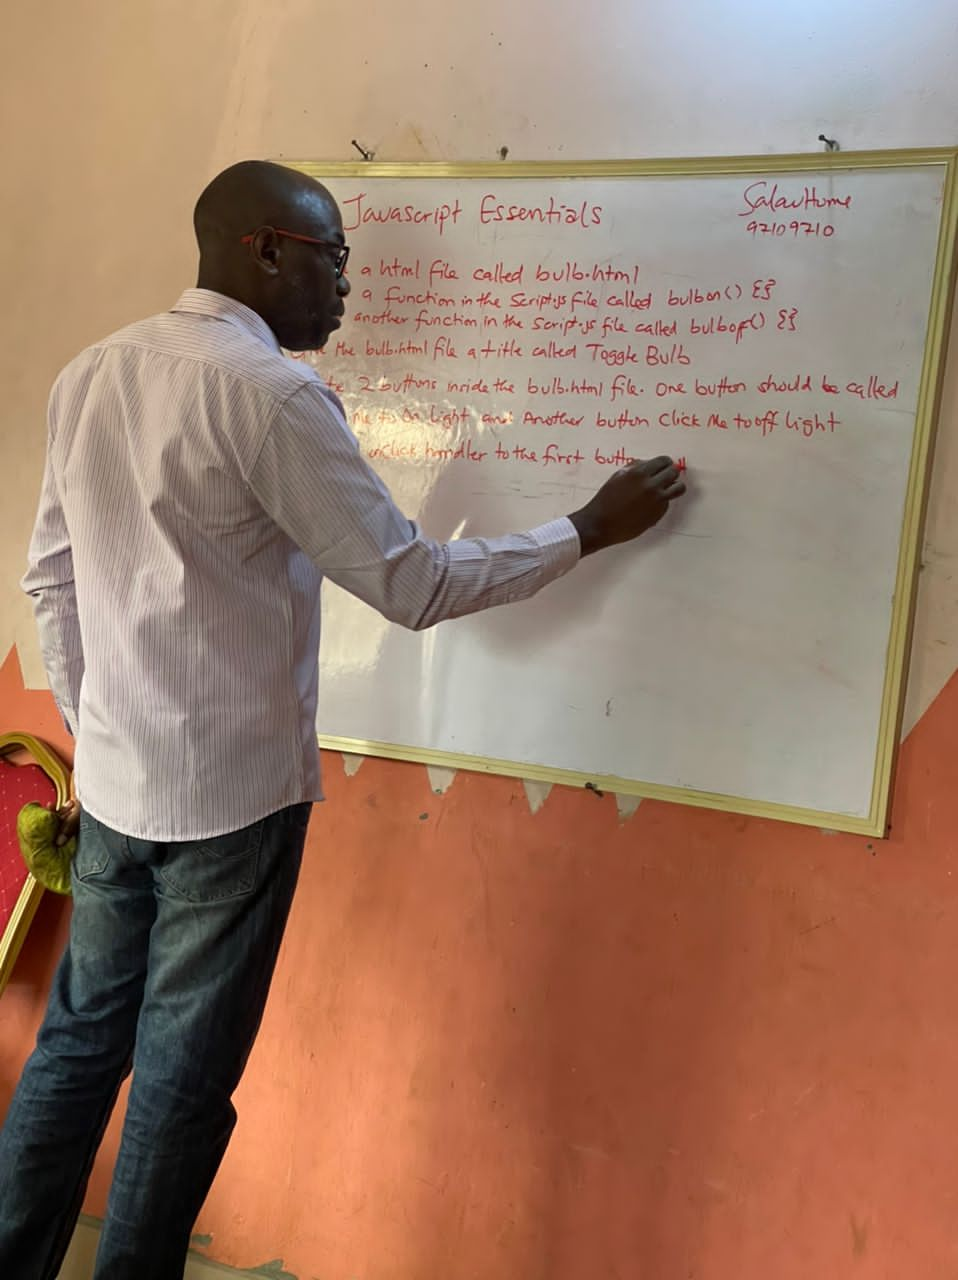 Javascript Essentials
SalauHome
97109710
a html file called bulb.html
a function in the Script.js file called bulbon() {}
another function in the Script.js file called bulbof() {}
the bulb.html file a title called Toggle Bulb
2 buttons inside the bulb.html file. One button should be called
Me to On Light and Another button Click Me to off Light
onclick handler to the first button